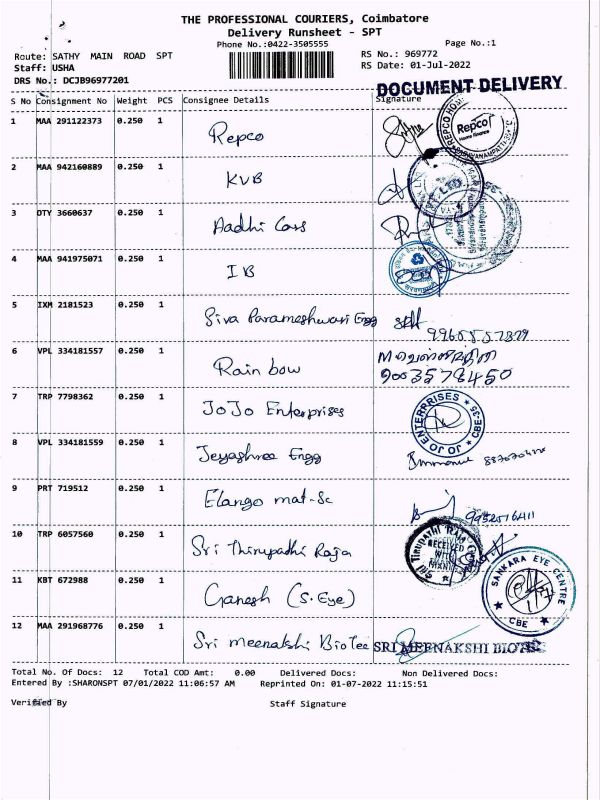 THE PROFESSIONAL COURIERS, Coimbatore
Delivery Runsheet - SPT
Phone No.:0422-3505555
Page No.:1
Route: SATHY MAIN ROAD SPT
RS No.: 969772
Staff: USHA
RS Date: 01-Jul-2022
DRS No.: DCJB96977201
DOCUMENT DELIVERY
S No Consignment No Weight PCS Consignee Details Signature
1 MAA 291122373 0.250 1 Repco
REPCO HOME
Repco
Home Finance
2 MAA 942160889 0.250 1 KVB
LTD
3 DTY 3660637 0.250 1 Aadhi Cars
4 MAA 941975071 0.250 1 IB
5 IXM 2181523 0.250 1 Siva Parameshwari Engg
6 VPL 334181557 0.250 1 Rain bow
9003578450
7 TRP 7798362 0.250 1 JoJo Enterprises
JO JO ENTERPRISES
CBE-35
8 VPL 334181559 0.250 1 Jeyashree Engg
9 PRT 719512 0.250 1 Elango mat-Sc
9952516411
10 TRP 6057560 0.250 1 Sri Thirupathi Raja
RECEIVED
WITH
THANKS
11 KBT 672988 0.250 1 Ganesh (S. Eye)
SANKARA EYE CENTRE
CBE
12 MAA 291968776 0.250 1 Sri meenakshi BioTec
SRI MEENAKSHI BIOTEC
Total No. Of Docs: 12 Total COD Amt: 0.00 Delivered Docs: Non Delivered Docs:
Entered By :SHARONSPT 07/01/2022 11:06:57 AM Reprinted On: 01-07-2022 11:15:51
Verified By Staff Signature